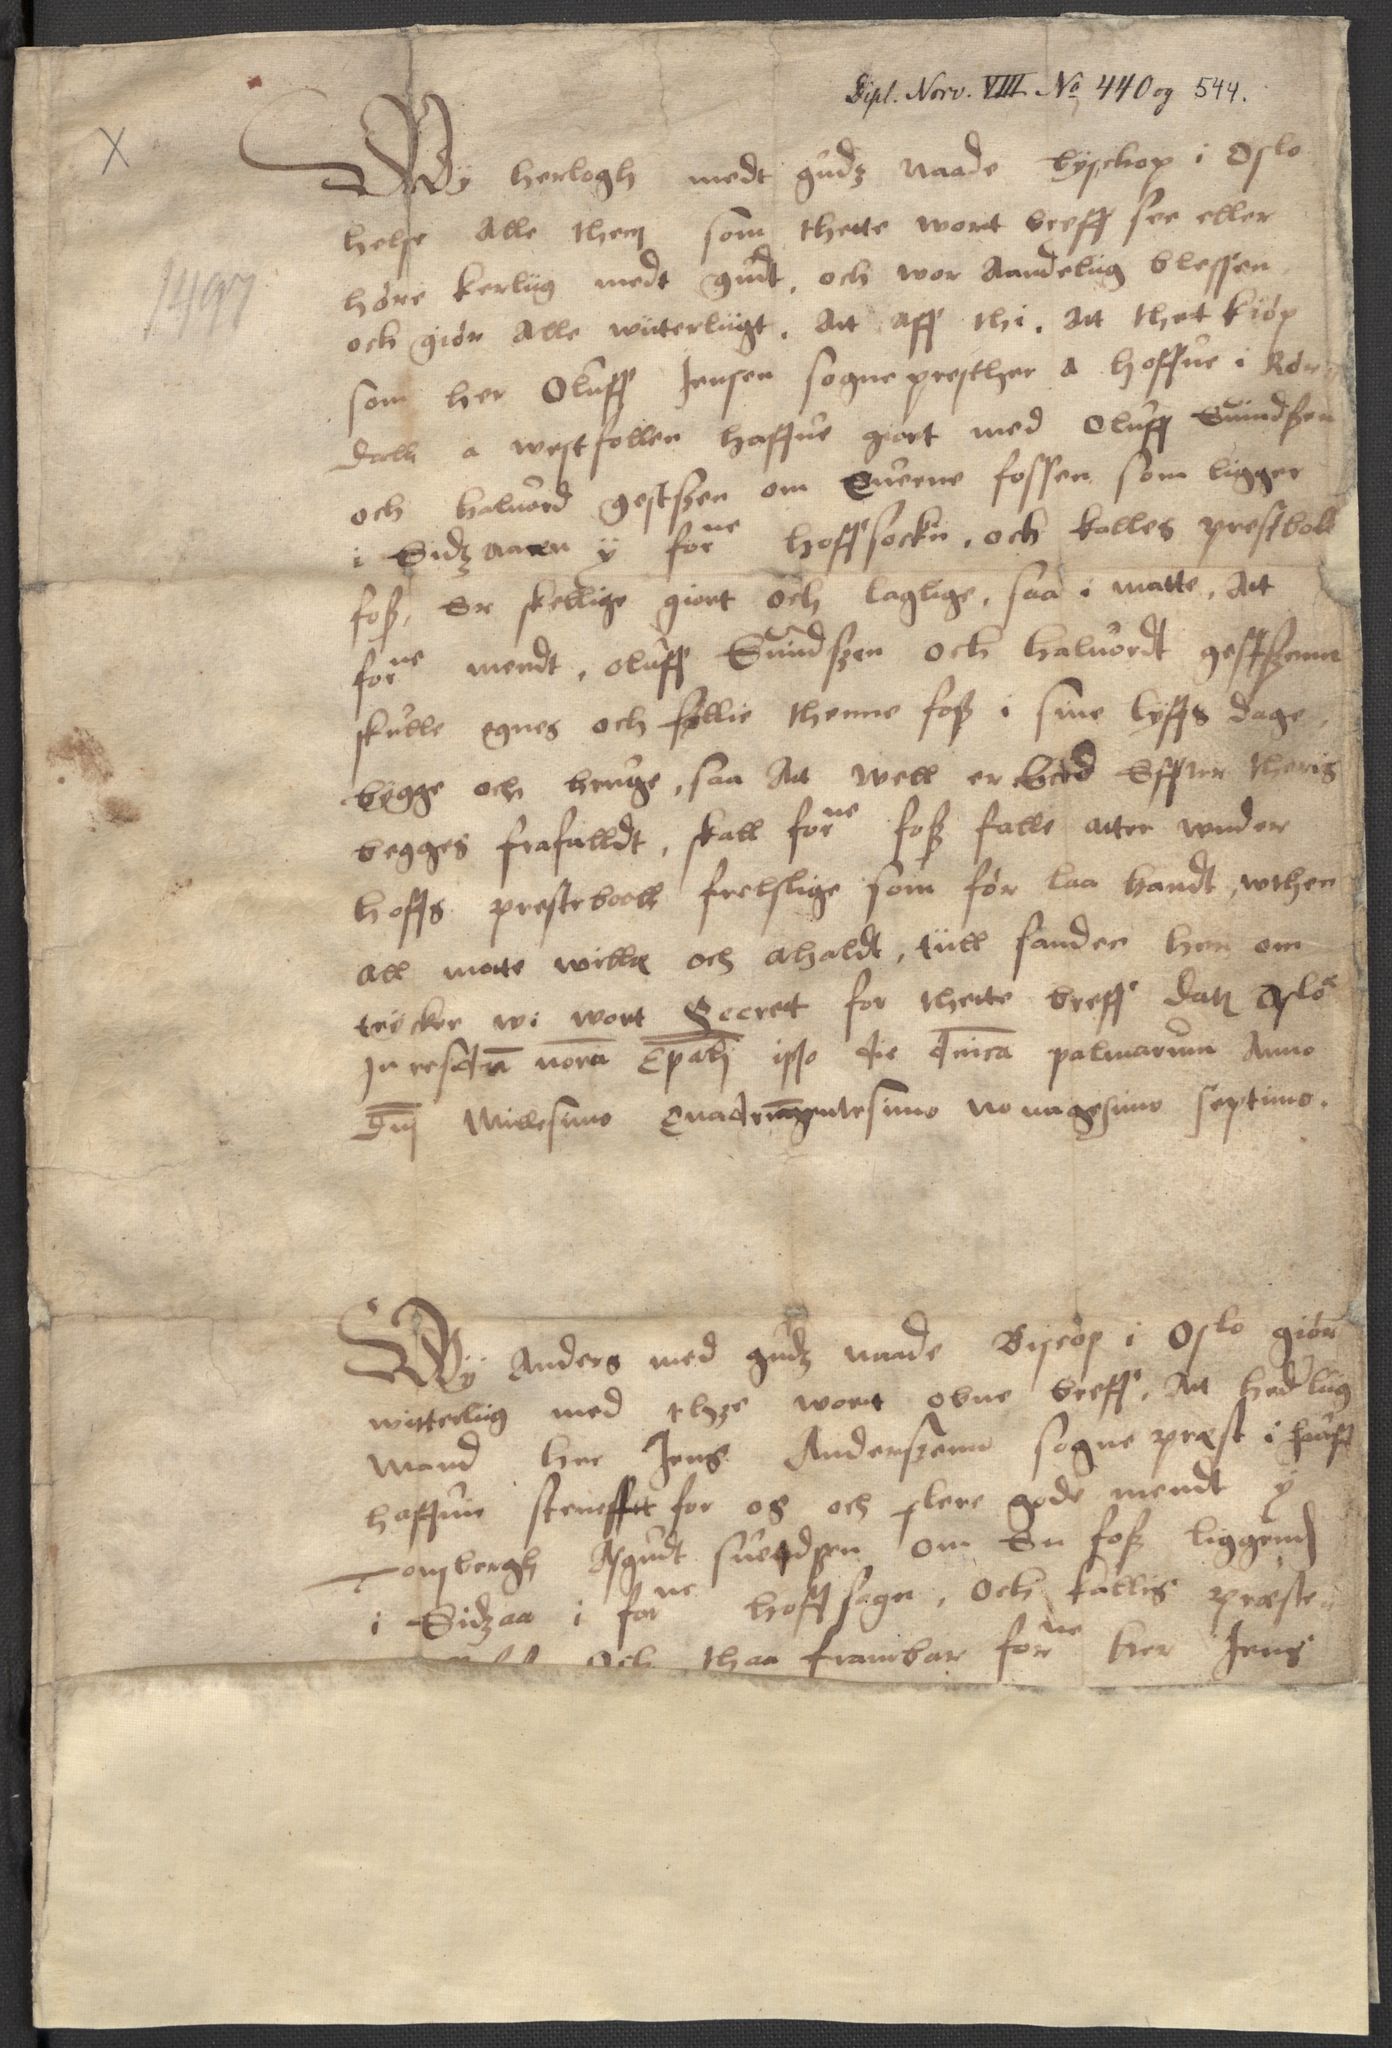 Dipl. Norv. VIII No 440 og 544.
X
1497
Wÿ herlogh medt gudz naade byschop i Oslo
helse Alle them som thette wort breff see eller
høre kerlüg medt gud, och wor Aandelüg blessen
och giør Alle witerlügt. Att aff thi. att thet kiøp
som her Oluff Jensen sogneprester a hoffue i Rør
dall a westfollen haffue giort med Oluff Suindszen
och haluord gestszen om Querne fossen som ligger
i Sidz aaen ÿ forne hoffsockn, och kalles prestboll
fosz, Er skellige giort och laglige, saa i matte, Att
forne mendt, oluff Suindszen och haluordt gestszenn
skulle egnes ochføllie thenne fosz i sine lyffs dage,
bygge och bruge, saa Att well er Effter theris
begges frafalldt, skall forne fosz falle atter wnder
hoffs presteboell frelslige som før laa handt, wthen
all motte willæ och ahaldt, tiill sanden her om
trøcker wi wort Secrett for thette breff Dat Oslo
In residen nora Epali ipso die dnica palmarum Anno
Dnj Millesimo Quadringentesimo nonagesimo septimo.
Wÿ Anders med gudz naade Biscop i Oslo giør
witterlüg med thze wort obne breff, Att hedrlüg
mand her Jens Anderszenn sogne præst i
haffuer steueffnt for os och flere gode mendt ÿ
Tonsbergh Asgudt suendszen om En fosz liggend
i Sidz aa i forne hoffsogn, Och kallis præste
Och thaa frambar forne her Jens